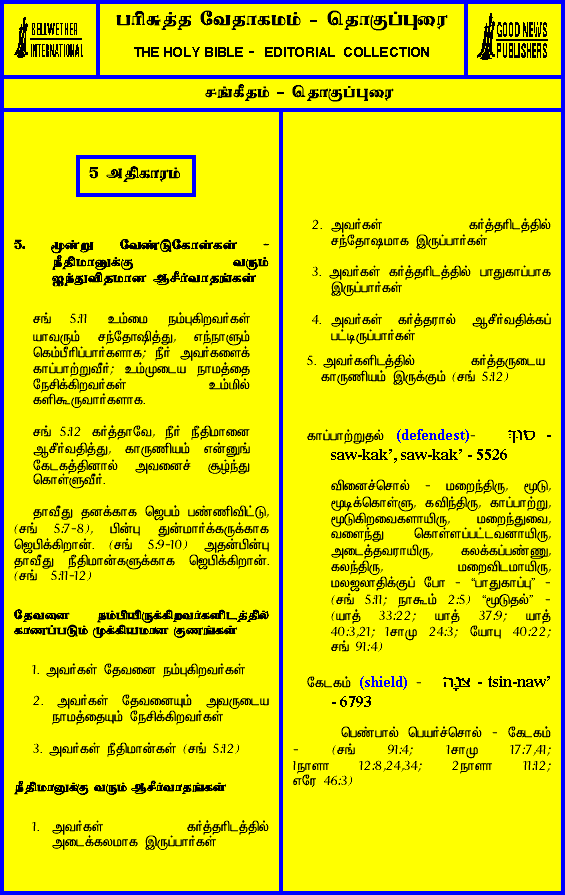 BELLWETHER
INTERNATIONAL
பரிசுத்த வேதாகமம் - தொகுப்புரை
THE HOLY BIBLE - EDITORIAL COLLECTION
GOOD NEWS
PUBLISHERS
சங்கீதம் - தொகுப்புரை
5 அதிகாரம்
5. மூன்று வேண்டுகோள்கள் -
நீதிமானுக்கு வரும்
ஐந்துவிதமான ஆசீர்வாதங்கள்
சங் 5:11 உம்மை நம்புகிறவர்கள்
யாவரும் சந்தோஷித்து, எந்நாளும்
கெம்பீரிப்பார்களாக; நீர் அவர்களைக்
காப்பாற்றுவீர்; உம்முடைய நாமத்தை
நேசிக்கிறவர்கள் உம்மில்
களிகூருவார்களாக.
சங் 5:12 கர்த்தாவே, நீர் நீதிமானை
ஆசீர்வதித்து, காருணியம் என்னுங்
கேடகத்தினால் அவனைச் சூழ்ந்து
கொள்ளுவீர்.
தாவீது தனக்காக ஜெபம் பண்ணிவிட்டு,
(சங் 5:7-8), பின்பு துன்மார்க்கருக்காக
ஜெபிக்கிறான். (சங் 5:9-10) அதன்பின்பு
தாவீது நீதிமான்களுக்காக ஜெபிக்கிறான்.
(சங் 5:11-12)
தேவனை நம்பியிருக்கிறவர்களிடத்தில்
காணப்படும் முக்கியமான குணங்கள்
1. அவர்கள் தேவனை நம்புகிறவர்கள்
2. அவர்கள் தேவனையும் அவருடைய
நாமத்தையும் நேசிக்கிறவர்கள்
3. அவர்கள் நீதிமான்கள் (சங் 5:12)
நீதிமானுக்கு வரும் ஆசீர்வாதங்கள்
1. அவர்கள் கர்த்தரிடத்தில்
அடைக்கலமாக இருப்பார்கள்
2. அவர்கள் கர்த்தரிடத்தில்
சந்தோஷமாக இருப்பார்கள்
3. அவர்கள் கர்த்தரிடத்தில் பாதுகாப்பாக
இருப்பார்கள்
4. அவர்கள் கர்த்தரால் ஆசீர்வதிக்கப்
பட்டிருப்பார்கள்
5. அவர்களிடத்தில் கர்த்தருடைய
காருணியம் இருக்கும் (சங் 5:12)
காப்பாற்றுதல் (defendest)- סוּךְ -
saw-kak’, saw-kak’ - 5526
வினைச்சொல் - மறைந்திரு, மூடு,
மூடிக்கொள்ளு, கவிந்திரு, காப்பாற்று,
மூடுகிறவைகளாயிரு, மறைந்துவை,
வளைந்து கொள்ளப்பட்டவனாயிரு,
அடைத்தவராயிரு, கலக்கப்பண்ணு,
கலந்திரு, மறைவிடமாயிரு,
மலஜலாதிக்குப் போ - “பாதுகாப்பு” -
(சங் 5:11; நாகூம் 2:5) “மூடுதல்” -
(யாத் 33:22; யாத் 37:9; யாத்
40:3,21; 1சாமு 24:3; யோபு 40:22;
சங் 91:4)
கேடகம் (shield) - צִנָּה - tsin-naw’
- 6793
பெண்பால் பெயர்ச்சொல் - கேடகம்
- (சங் 91:4; 1சாமு 17:7,41;
1நாளா 12:8,24,34; 2நாளா 11:12;
எரே 46:3)